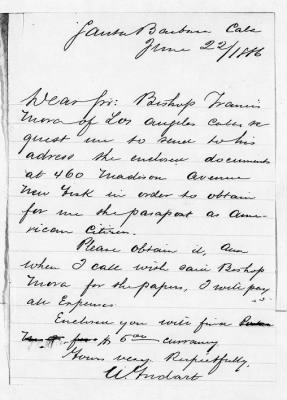 Santa Barbara Cala
June 22/1886
Dear Sir: Bishop Francis
Mora of Los Angeles Cala re
quest me to send to his
adress the enclosed documents
at 460 Madison Avenue
New York in order to obtain
for me the pasaport as Ame-
rican Citizen.
Please obtain it, and
when I call with said Bishop
Mora for the papers, I will pay
all Expenses
Enclosed you will find
$ 5 00 currancy
Yours very Respectfully,